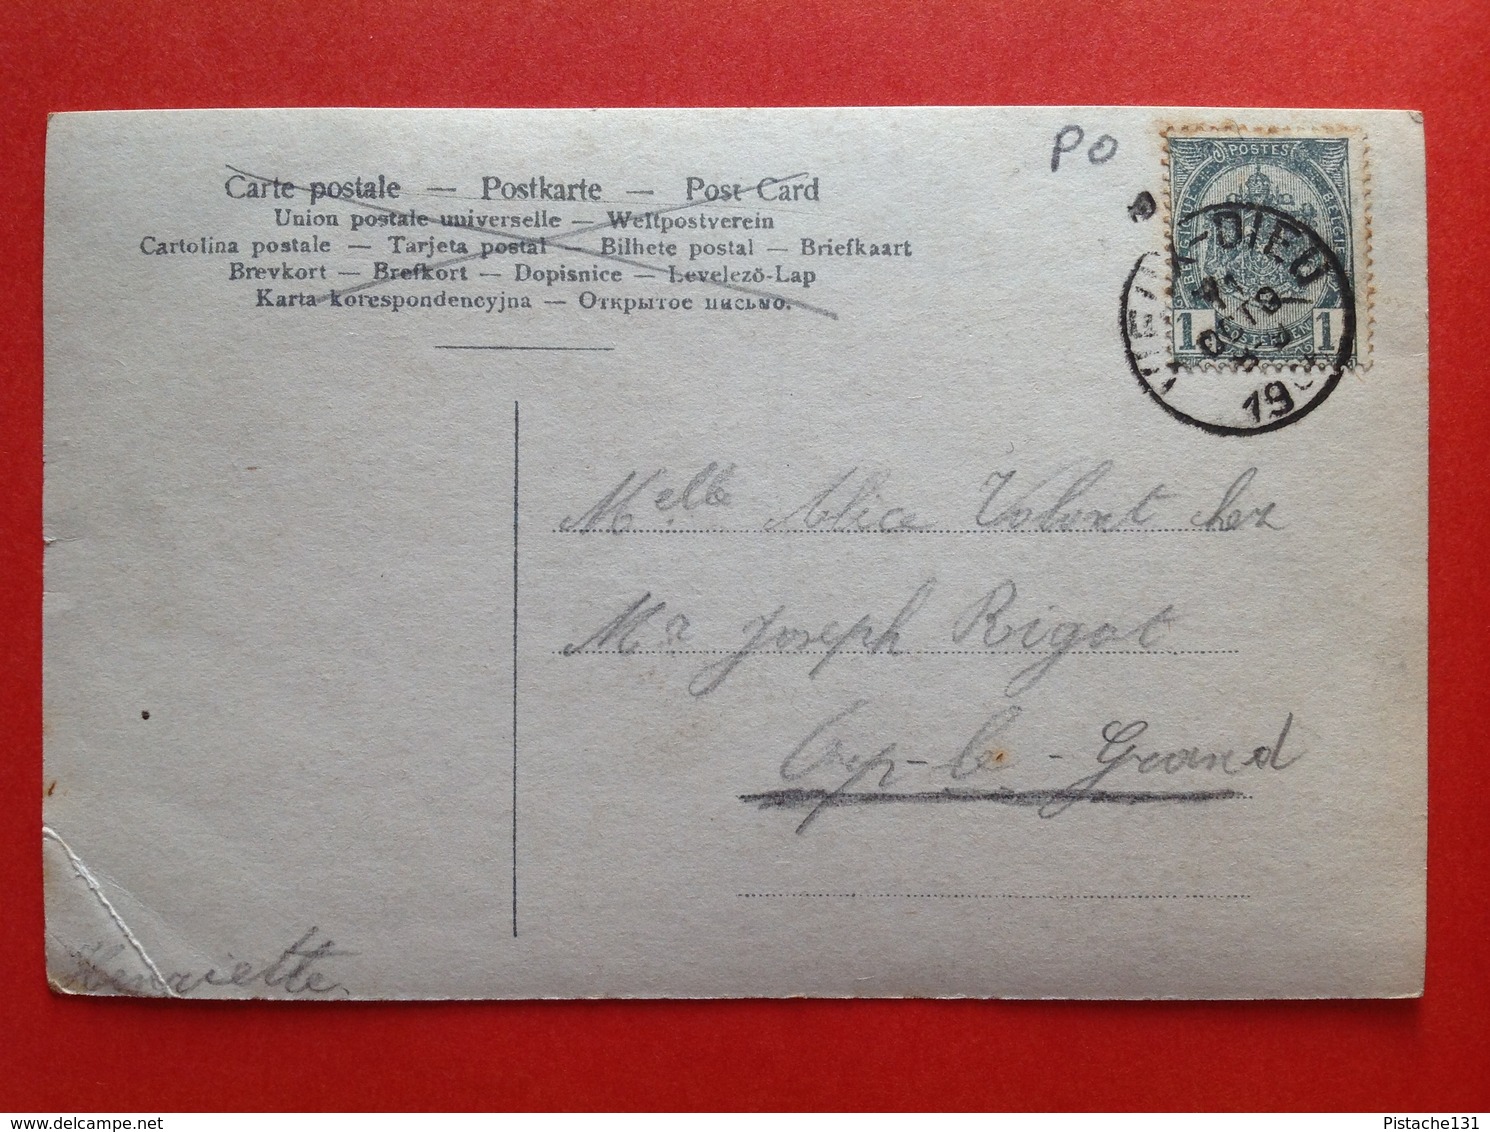 PO
Carte postale — Postkarte — Post Card
Union postale universelle — Weltpostverein
Cartolina postale — Tarjeta postal — Bilhete postal — Briefkaart
Brevkort — Brefkort — Dopisnice — Levelező-Lap
Karta korespondencyjna — Открытое письмо.
POSTES
1 1
-DIEU
19
Melle Alice Volont chez
Mr Joseph Rigot
Orp-le-Grand
Henriette
Pistache131